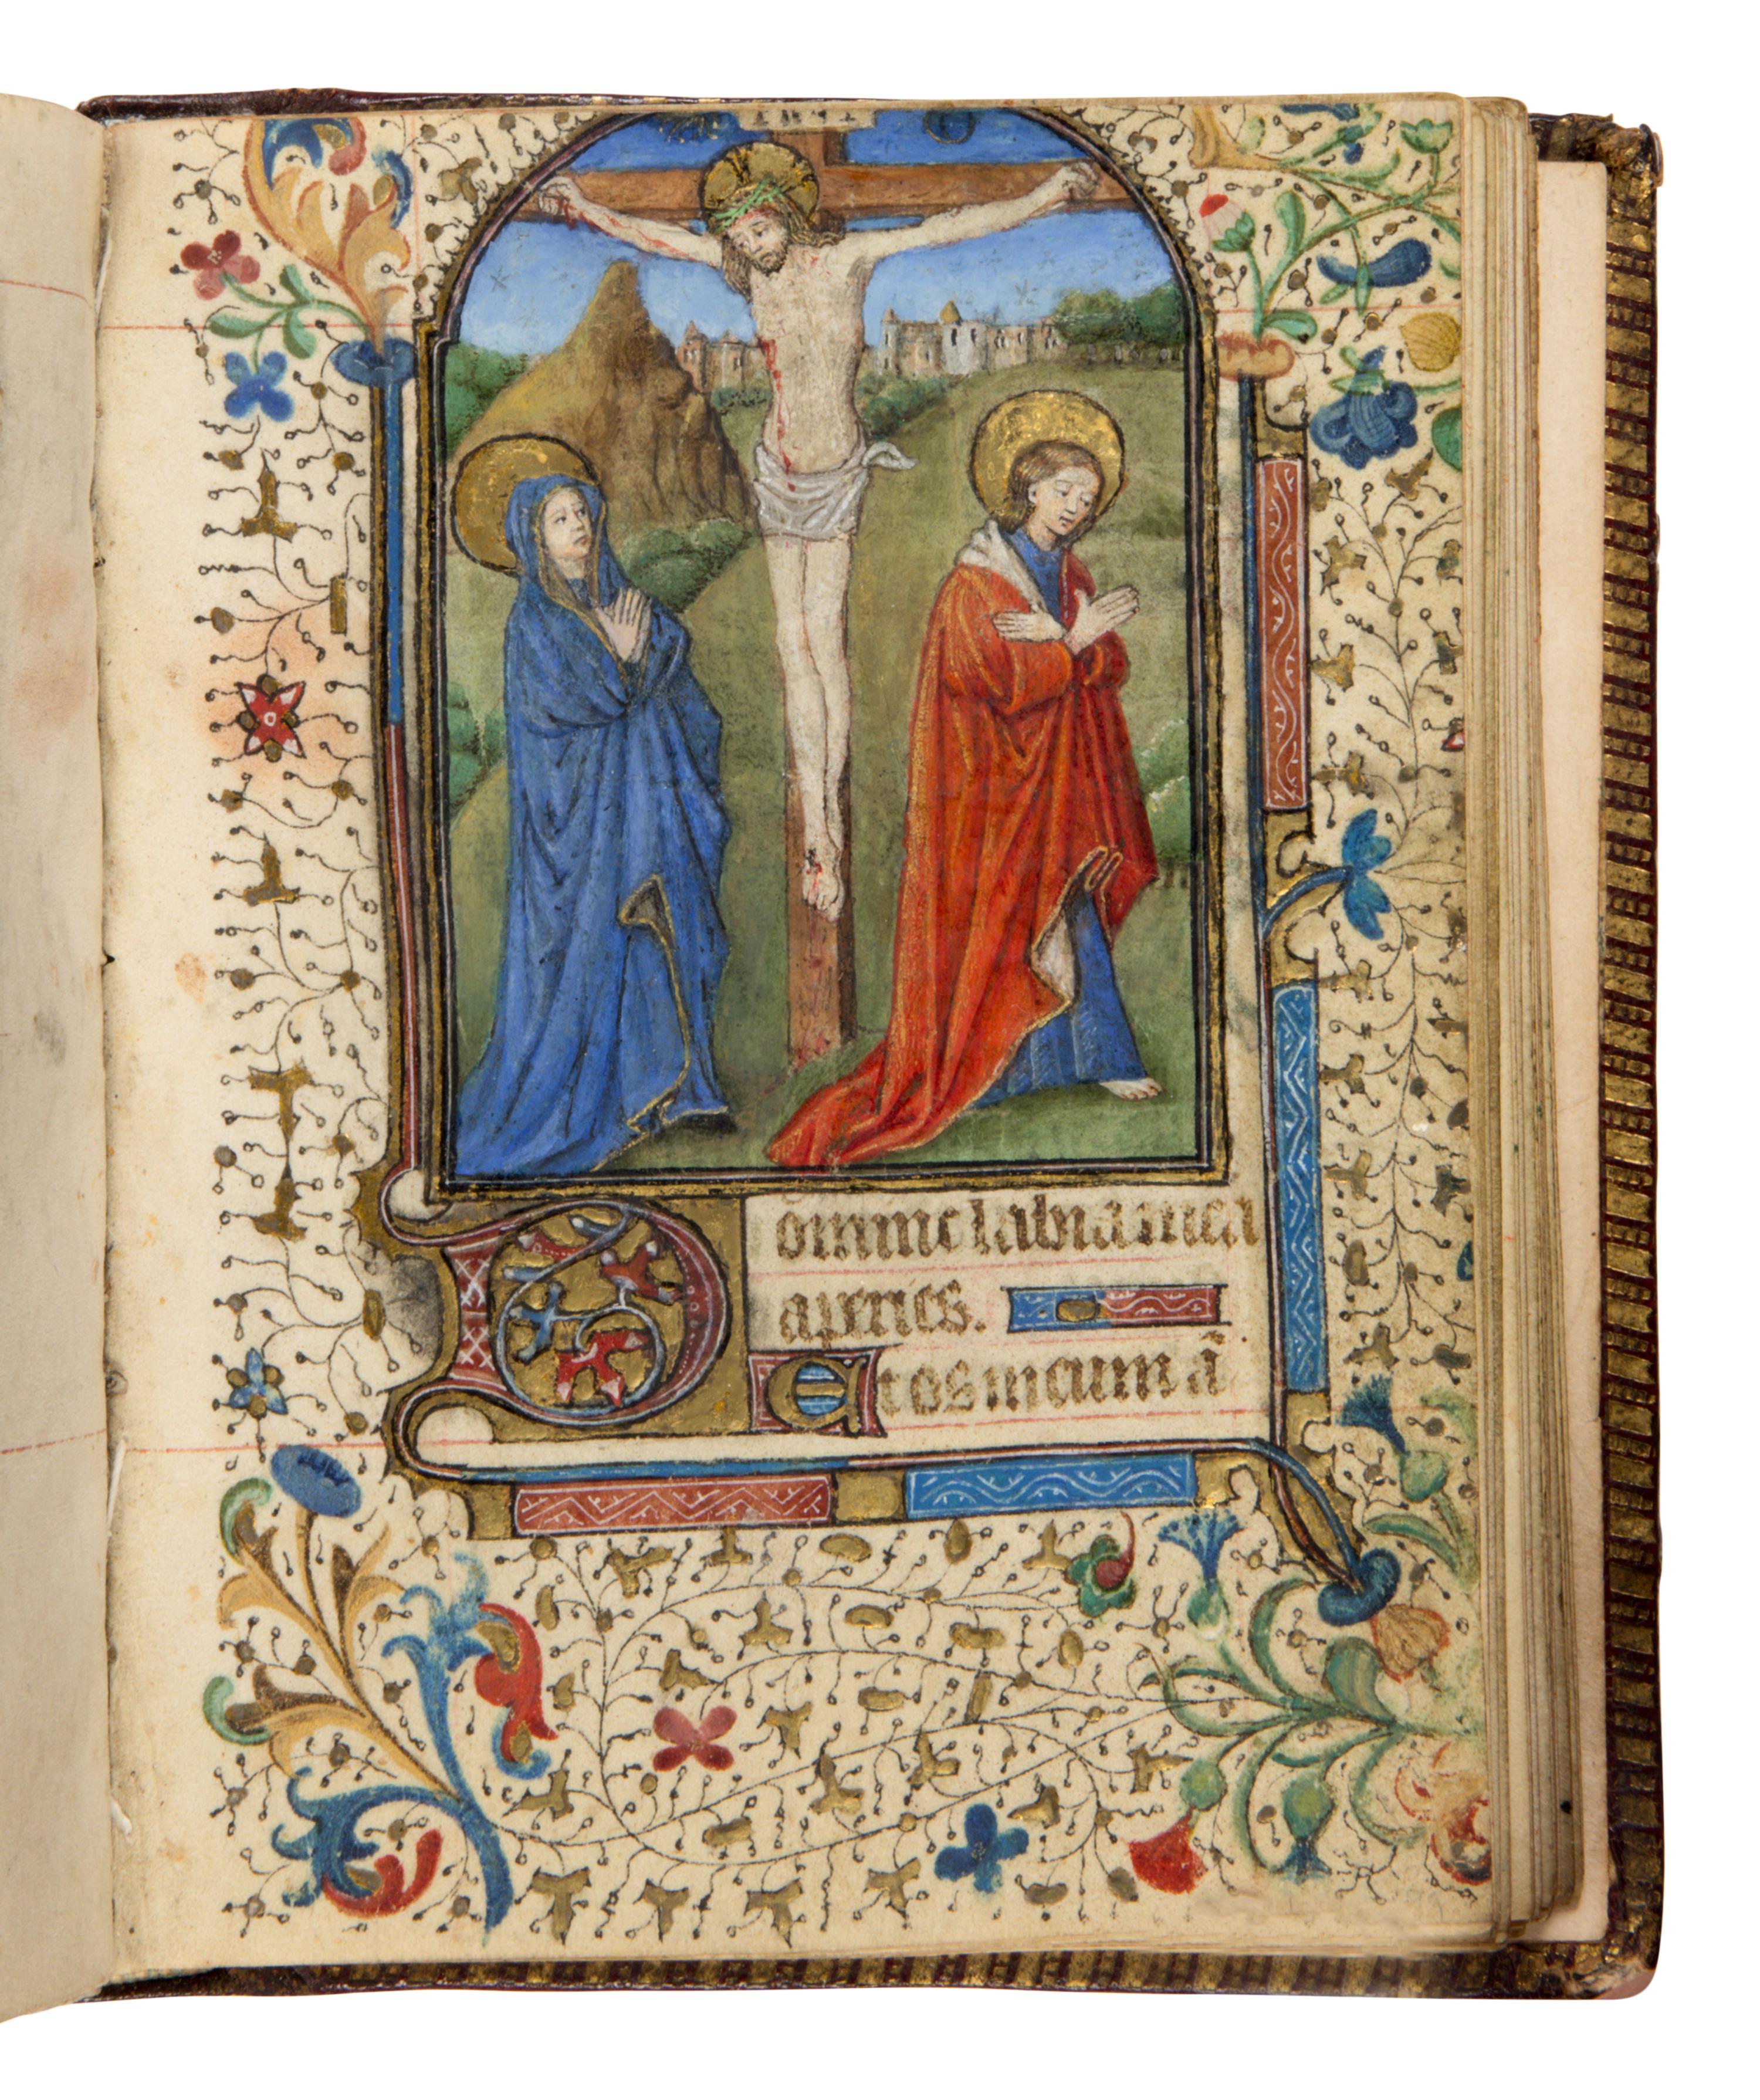 INRI
Domine labia mea
aperies.
Et os meum ā